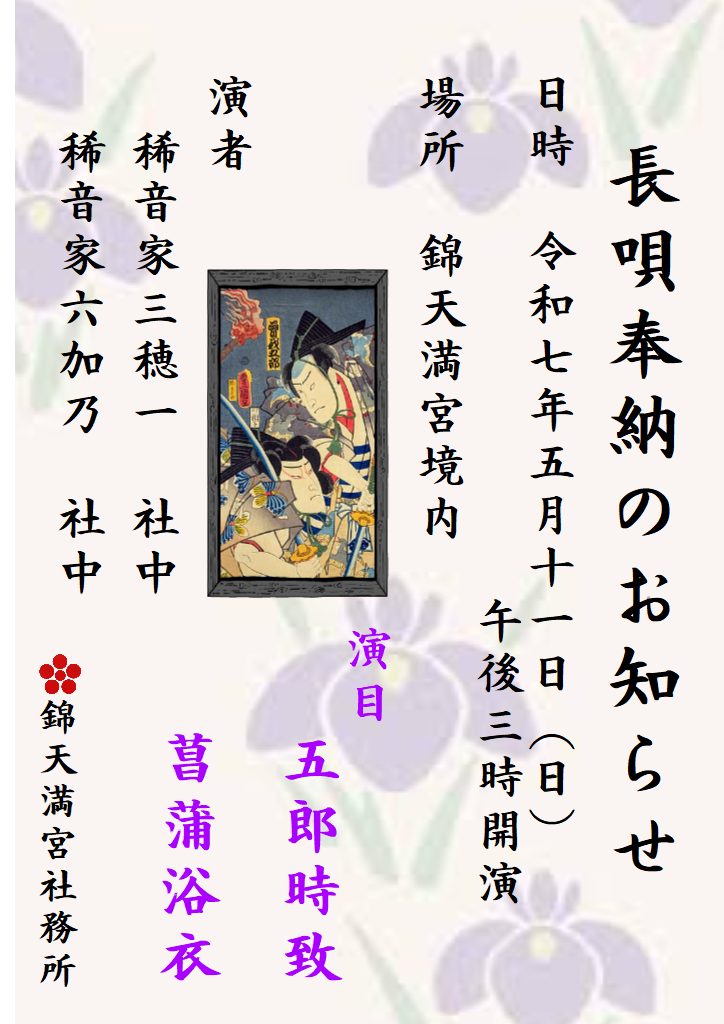 長唄奉納のお知らせ
日時 令和七年五月十一日(日)
午後三時開演
場所 錦天満宮境内
演目
五郎時致
菖蒲浴衣
曽我五郎
演者
稀音家三穂一 社中
稀音家六加乃 社中
錦天満宮社務所